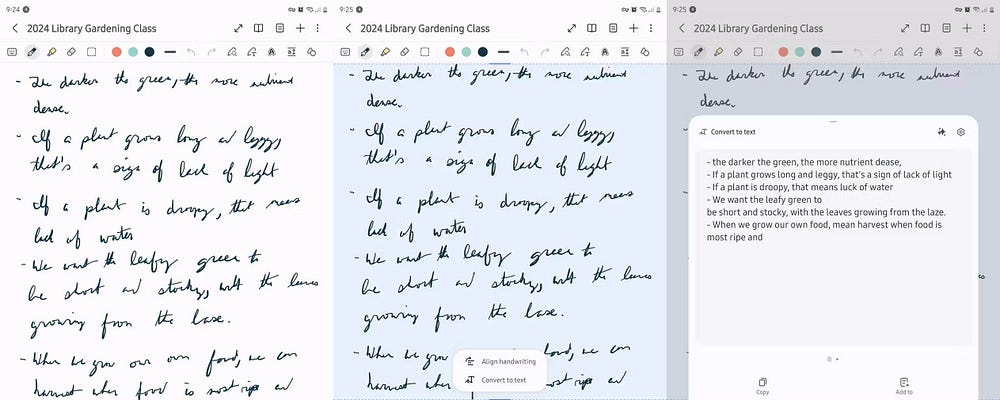 9:24
2024 Library Gardening Class
- The darker the green, the more nutrient
dense.
- If a plant grows long and leggy,
that's a sign of lack of light
- If a plant is droopy, that means
lack of water
- We want the leafy green to
be short and stocky, with the leaves
growing from the base.
- When we grow our own food, we can
harvest when food is most ripe and
9:25
2024 Library Gardening Class
- The darker the green, the more nutrient
dense.
- If a plant grows long and leggy,
that's a sign of lack of light
- If a plant is droopy, that means
lack of water
- We want the leafy green to
be short and stocky, with the leaves
growing from the base.
- When we grow food, we can
harvest when most ripe and
Align handwriting
Convert to text
9:25
2024 Library Gardening Class
- The darker the green, the more nutrient
dense.
Convert to text
- the darker the green, the more nutrient dease,
- If a plant grows long and leggy, that's a sign of lack of light
- If a plant is droopy, that means luck of water
- We want the leafy green to
be short and stocky, with the leaves growing from the laze.
- When we grow our own food, mean harvest when food is
most ripe and
Copy
Add to